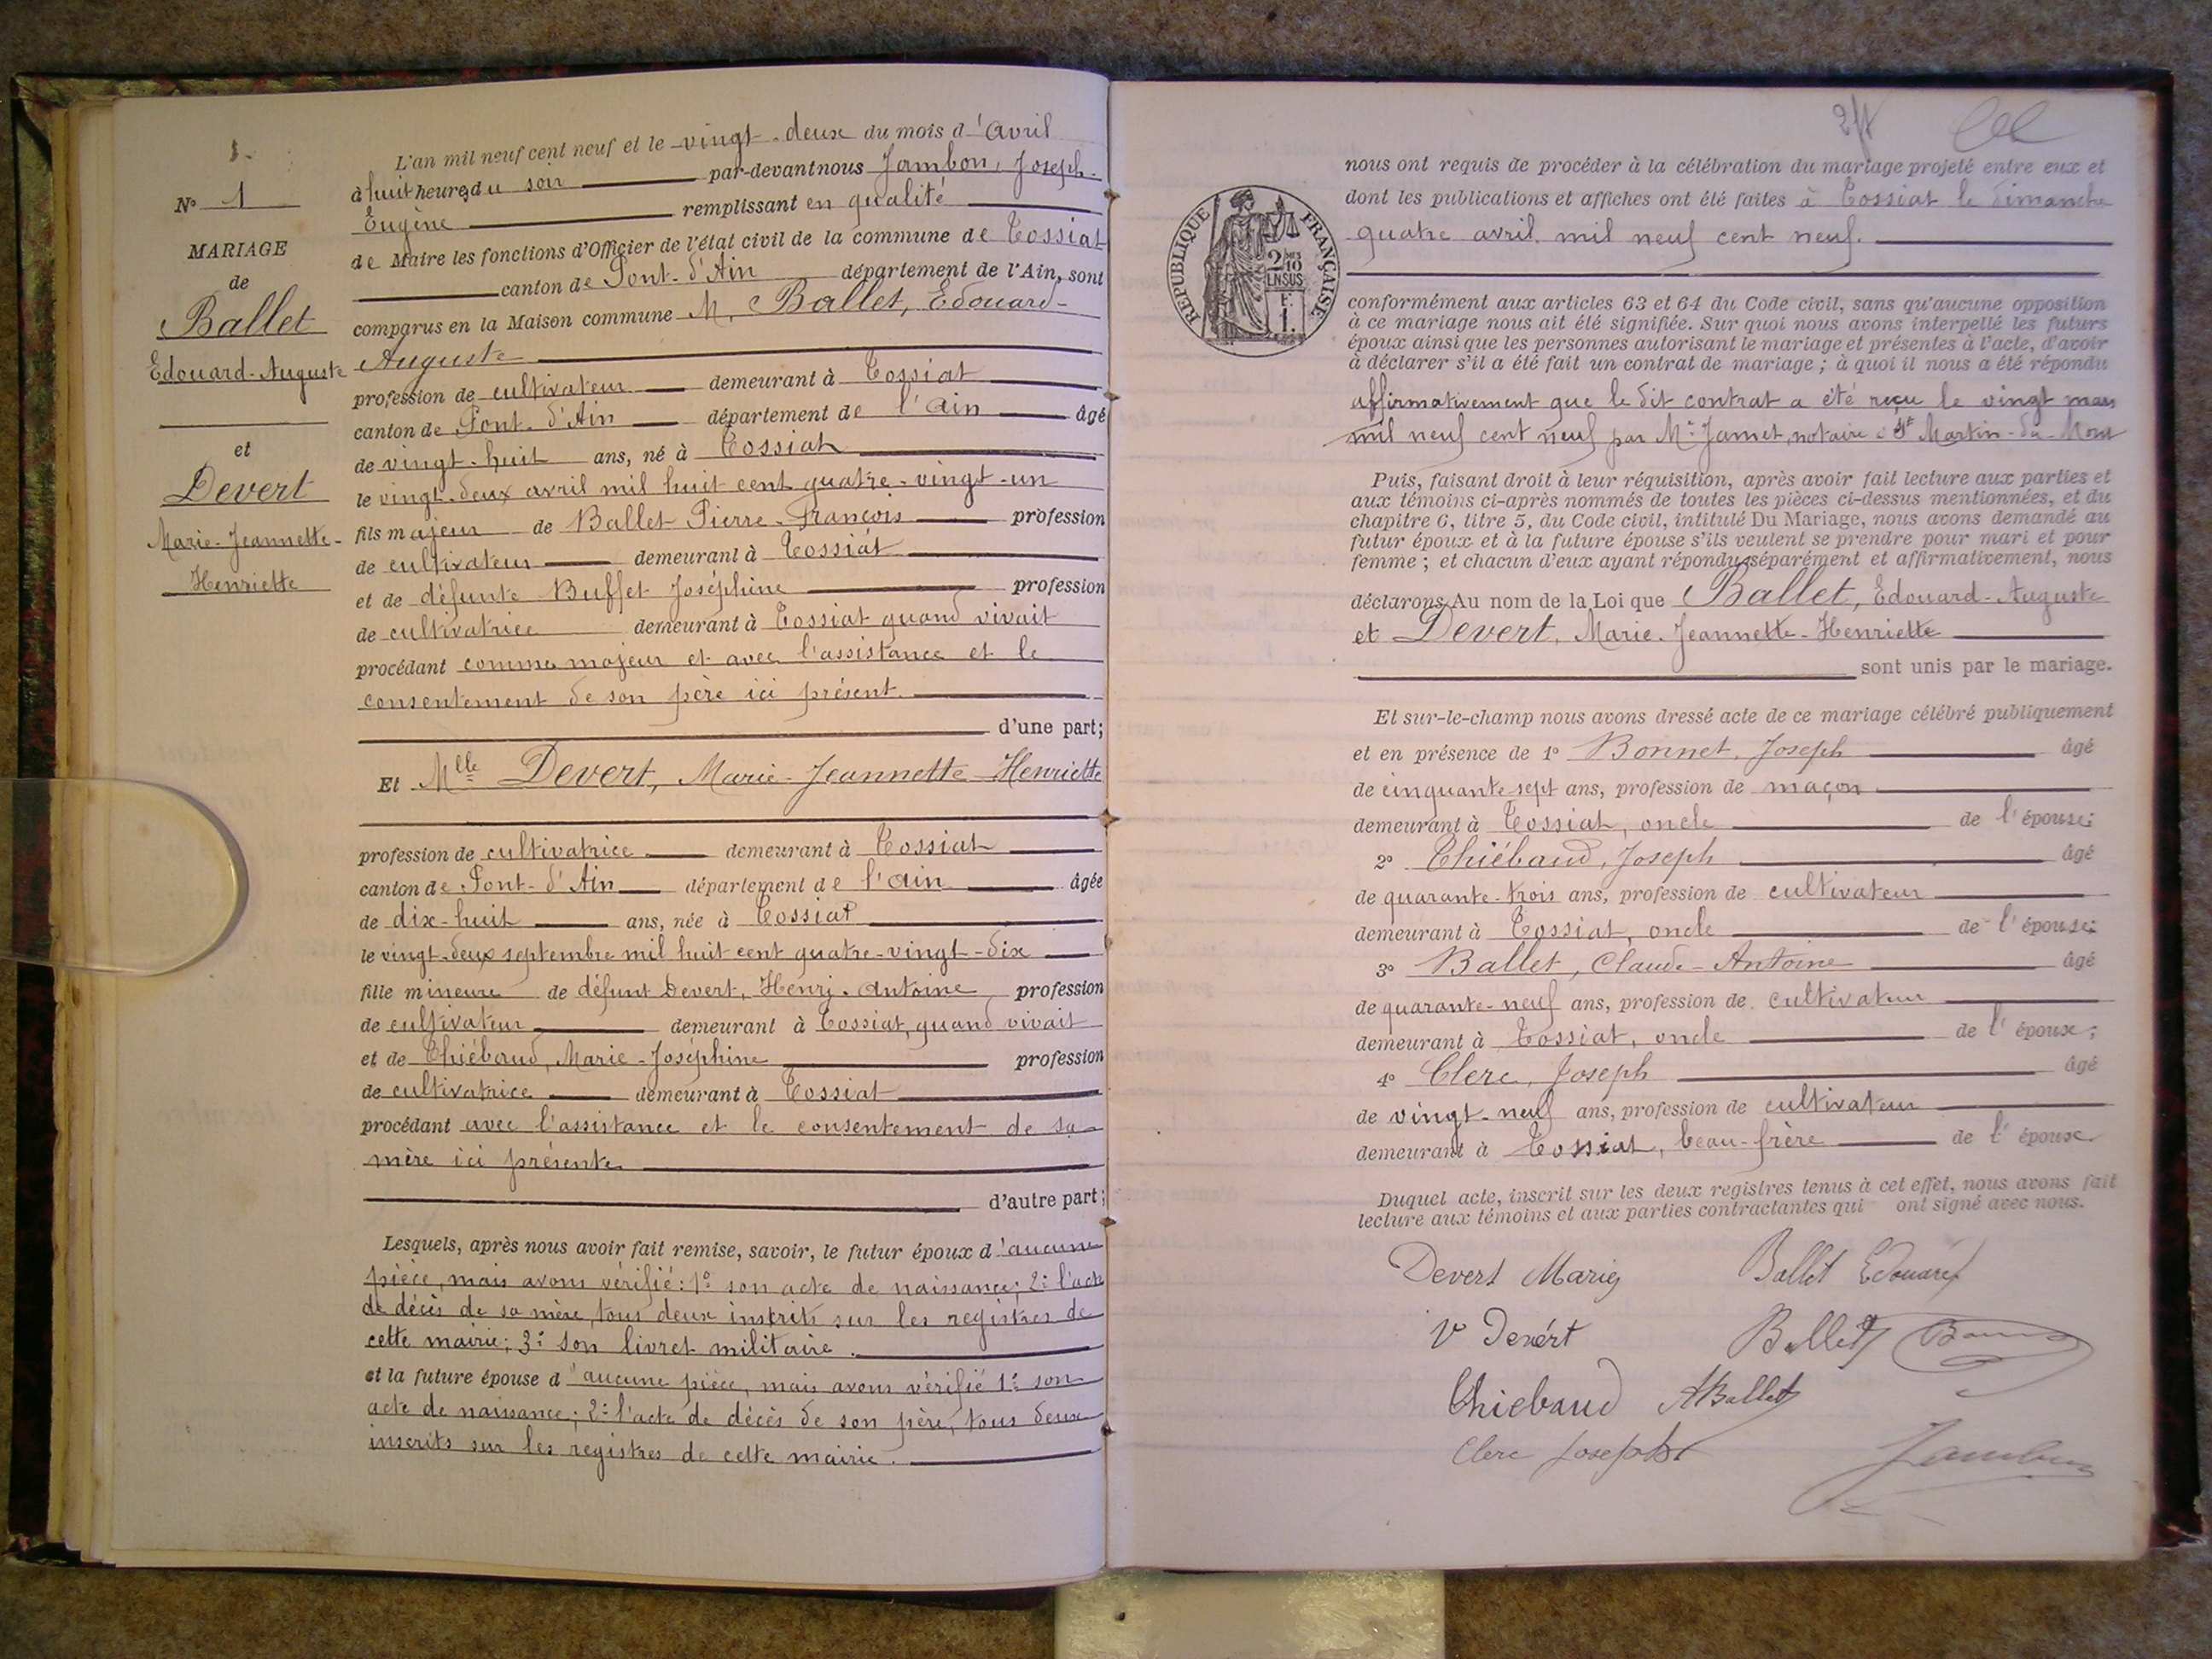 1.
N° 1
MARIAGE
de
Ballet
Edouard-Auguste
et
Devert
Marie-Jeannette-
Henriette
L'an mil neuf cent neuf et le vingt-deux du mois d'avril
à huit heures du soir par-devant nous Jambon, Joseph-
Eugène remplissant en qualité
de Maire les fonctions d'Officier de l'état civil de la commune de Tossiat
canton de Pont-d'Ain département de l'Ain, sont
comparus en la Maison commune M. Ballet, Edouard-
Auguste
profession de cultivateur demeurant à Tossiat
canton de Pont-d'Ain département de l'ain âgé
de vingt-huit ans, né à Tossiat
le vingt-deux avril mil huit cent quatre-vingt-un
fils majeur de Ballet Pierre-François profession
de cultivateur demeurant à Tossiat
et de défunte Buffet Joséphine profession
de cultivatrice demeurant à Tossiat quand vivait
procédant comme majeur et avec l'assistance et le
consentement de son père ici présent.
d'une part;
Et Mlle Devert, Marie-Jeannette-Henriette
profession de cultivatrice demeurant à Tossiat
canton de Pont-d'Ain département de l'ain âgée
de dix-huit ans, née à Tossiat
le vingt-deux septembre mil huit cent quatre-vingt-dix
fille mineure de défunt Devert, Henri-Antoine profession
de cultivateur demeurant à Tossiat, quand vivait
et de Thiébaud, Marie-Joséphine profession
de cultivatrice demeurant à Tossiat
procédant avec l'assistance et le consentement de sa
mère ici présente
d'autre part;
Lesquels, après nous avoir fait remise, savoir, le futur époux d'aucune
pièce, mais avons vérifié: 1° son acte de naissance; 2° l'acte
de décès de sa mère, tous deux inscrits sur les registres de
cette mairie; 3° son livret militaire.
et la future épouse d'aucune pièce, mais avons vérifié 1° son
acte de naissance; 2° l'acte de décès de son père, tous deux
inscrits sur les registres de cette mairie.
RÉPUBLIQUE FRANÇAISE
2/10
EN SUS
1 F.
nous ont requis de procéder à la célébration du mariage projeté entre eux et
dont les publications et affiches ont été faites à Tossiat le dimanche
quatre avril mil neuf cent neuf.
conformément aux articles 63 et 64 du Code civil, sans qu'aucune opposition
à ce mariage nous ait été signifiée. Sur quoi nous avons interpellé les futurs
époux ainsi que les personnes autorisant le mariage et présentes à l'acte, d'avoir
à déclarer s'il a été fait un contrat de mariage; à quoi il nous a été répondu
affirmativement que le dit contrat a été reçu le vingt mars
mil neuf cent neuf par Me Jamet, notaire à St Martin-du-Mont
Puis, faisant droit à leur réquisition, après avoir fait lecture aux parties et
aux témoins ci-après nommés de toutes les pièces ci-dessus mentionnées, et du
chapitre 6, titre 5, du Code civil, intitulé Du Mariage, nous avons demandé au
futur époux et à la future épouse s'ils veulent se prendre pour mari et pour
femme; et chacun d'eux ayant répondu séparément et affirmativement, nous
déclarons Au nom de la Loi que Ballet, Edouard-Auguste
et Devert, Marie-Jeannette-Henriette
sont unis par le mariage.
Et sur-le-champ nous avons dressé acte de ce mariage célébré publiquement
et en présence de 1° Bonnet, Joseph âgé
de cinquante-sept ans, profession de maçon
demeurant à Tossiat, oncle de l'épouse;
2° Thiébaud, Joseph âgé
de quarante-trois ans, profession de cultivateur
demeurant à Tossiat, oncle de l'épouse;
3° Ballet, Claude-Antoine âgé
de quarante-neuf ans, profession de cultivateur
demeurant à Tossiat, oncle de l'époux;
4° Clerc, Joseph âgé
de vingt-neuf ans, profession de cultivateur
demeurant à Tossiat, beau-frère de l'époux.
Duquel acte, inscrit sur les deux registres tenus à cet effet, nous avons fait
lecture aux témoins et aux parties contractantes qui ont signé avec nous.
Devert Marie Ballet Edouard
Ve Devért Ballet
Thiebaud ABallet
Clerc Joseph Jambon